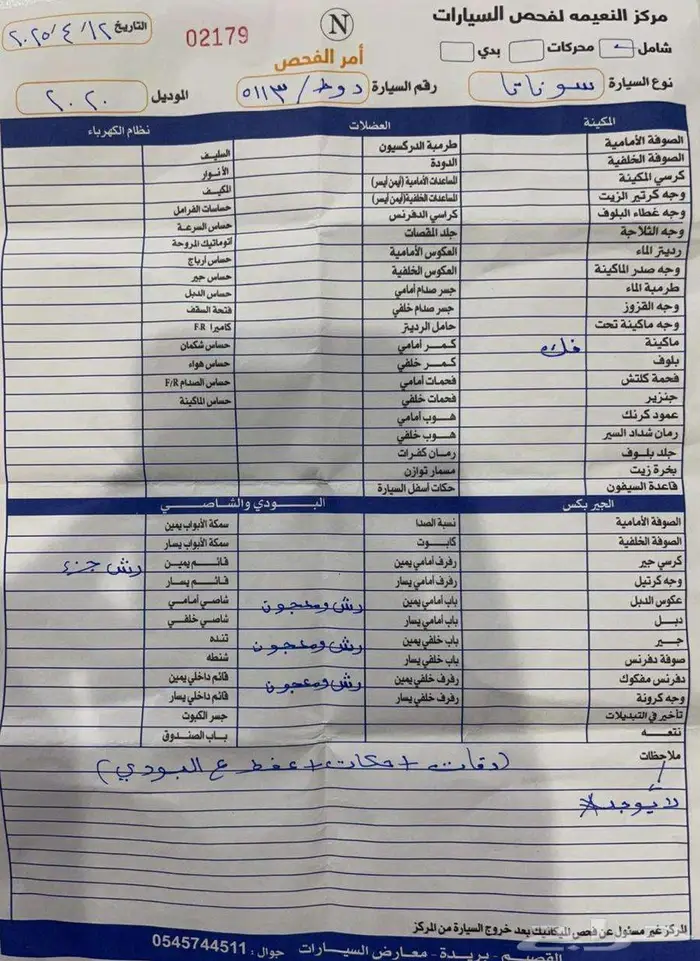 مركز النعيمه لفحص السيارات
N
التاريخ ٢٠٢٥/٤/١٢
02179
شامل محركات بدي
أمر الفحص
نوع السيارة سوناتا
رقم السيارة دوط/ ٥١١٣
الموديل ٢٠٢٠
المكينة
الصوفة الأمامية
الصوفة الخلفية
كرسي المكينة
وجه كرتير الزيت
وجه غطاء البلوف
وجه الثلاجة
رديتر الماء
وجه صدر الماكينة
طرمبة الماء
وجه القزوز
وجه ماكينة تحت
ماكينة فك
بلوف
فحمة كلتش
جنزير
عمود كرنك
رمان شداد السير
جلد بلوف
بخرة زيت
قاعدة السيفون
العضلات
طرمبة الدركسيون
الدودة
المساعدات الأمامية (أيمن أيسر)
المساعدات الخلفية (أيمن أيسر)
كراسي الدفرنس
جلد المقصات
العكوس الأمامية
العكوس الخلفية
جسر صدام أمامي
جسر صدام خلفي
حامل الرديتر
كمر أمامي
كمر خلفي
فحمات أمامي
فحمات خلفي
هوب أمامي
هوب خلفي
رمان كفرات
مسمار توازن
حكات أسفل السيارة
نظام الكهرباء
السليف
الأنوار
المكيف
حساسات الفرامل
حساس السرعة
أتوماتيك المروحة
حساس أرباج
حساس جير
حساس الدبل
فتحة السقف
كاميرا F.R
حساس شكمان
حساس هواء
حساس الصدام F/R
حساس الماكينة
الجير بكس
الصوفة الأمامية
الصوفة الخلفية
كرسي جير
وجه كرتيل
عكوس الدبل
دبل
جير
صوفة دفرنس
دفرنس مفكوك
وجه كرونة
تأخير في التبديلات
نتعه
البودي والشاصي
نسبة الصدا
كابوت
رفرف أمامي يمين
رفرف أمامي يسار
باب أمامي يمين رش ومعجون
باب أمامي يسار
باب خلفي يمين رش ومعجون
باب خلفي يسار
رفرف خلفي يمين رش ومعجون
رفرف خلفي يسار
سمكة الأبواب يمين
سمكة الأبواب يسار
قائم يمين رش جزء
قائم يسار
شاصي أمامي
شاصي خلفي
تنده
شنطه
قائم داخلي يمين
قائم داخلي يسار
جسر الكبوت
باب الصندوق
ملاحظات
(دقات + حكات + عفط ع البودي)
لا يوجد
المركز غير مسئول عن فحص الميكانيك بعد خروج السيارة من المركز
القصيم - بريدة - معارض السيارات جوال : 0545744511